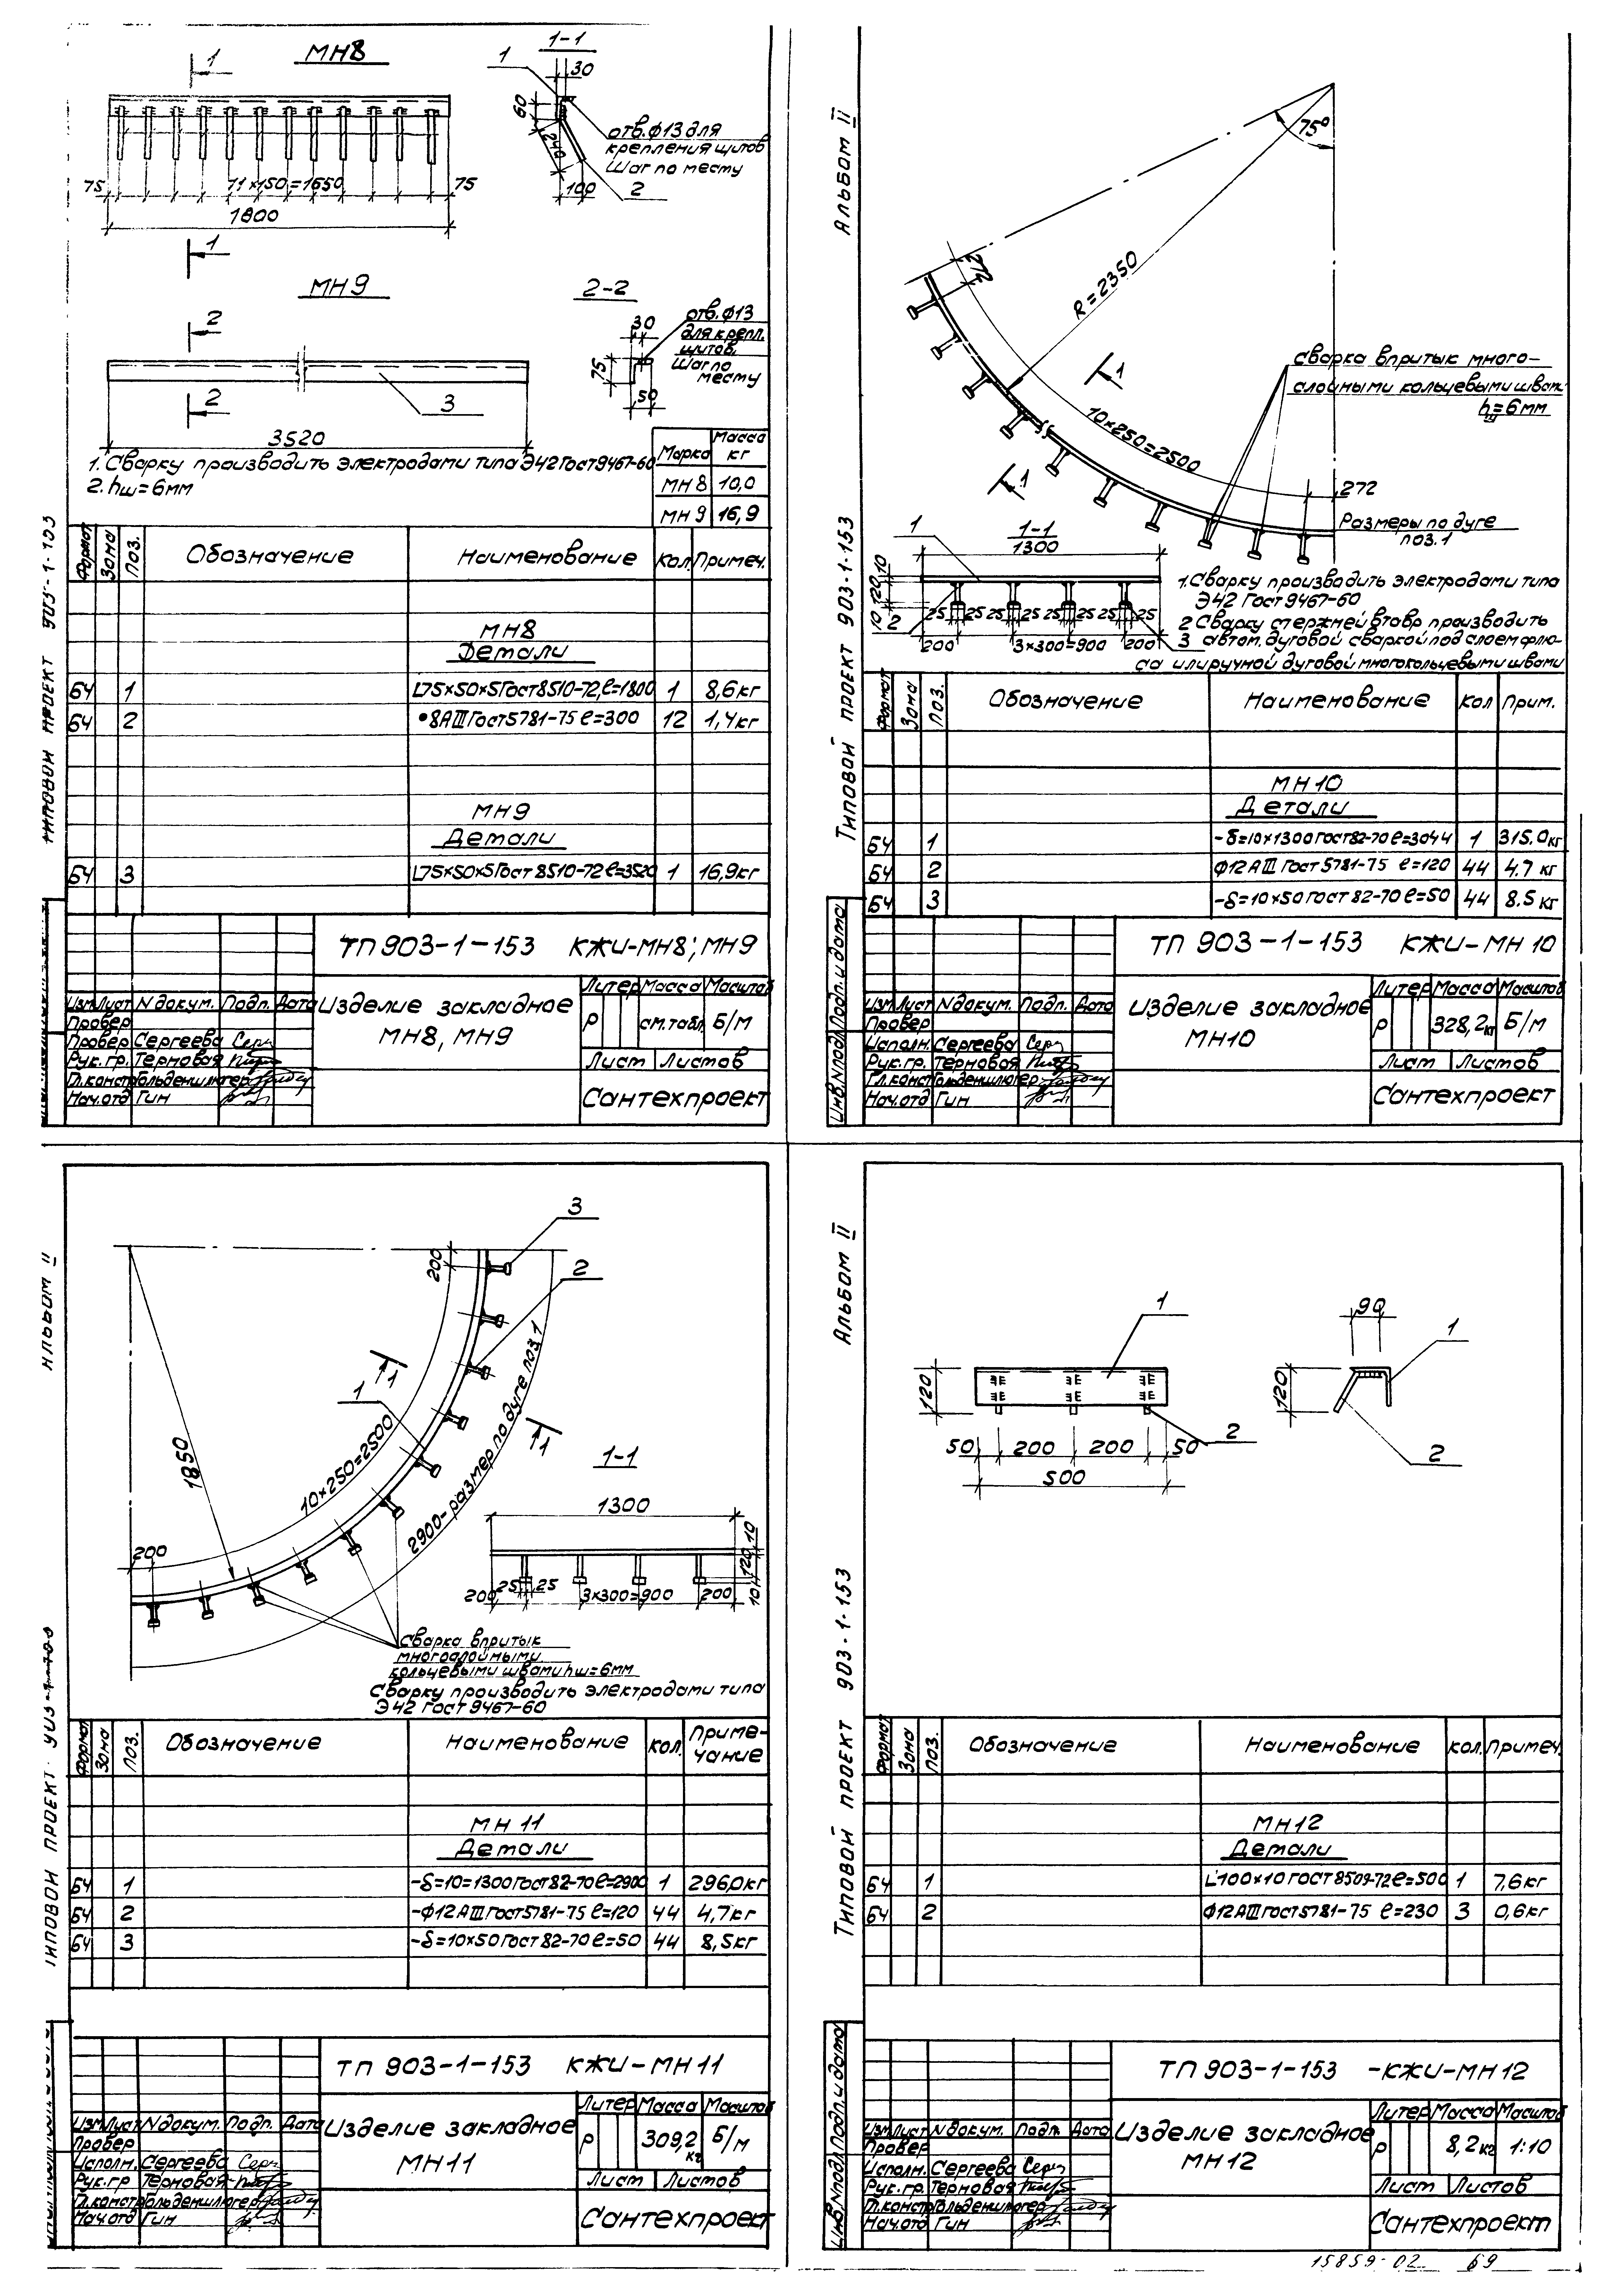 МН8
1
1
75
11×150=1650
75
1800
1-1
1
30
60
240
100
2
отв. ф13 для
крепления щитов
Шаг по месту
МН9
2
2
3
3520
2-2
30
75
50
отв. ф13
для крепл.
щитов.
Шаг по
месту
1. Сварку производить электродами типа Э42 Гост 9467-60
2. hш=6мм
Марка Масса кг
МН8 10,0
МН9 16,9
Типовой проект 903-1-153
Формат Зона Поз. Обозначение Наименование Кол. Примеч.
МН8
Детали
БЧ 1 L75×50×5 Гост 8510-72, ℓ=1800 1 8,6кг
БЧ 2 •8АIII Гост 5781-75 ℓ=300 12 1,4кг
МН9
Детали
БЧ 3 L75×50×5 Гост 8510-72 ℓ=3520 1 16,9кг
ТП 903-1-153 КЖИ-МН8; МН9
Изм. Лист N докум. Подп. Дата
Провер
Провер Сергеева
Рук. гр. Терновая
Гл. констр Гольденшлюгер
Нач. отд Гин
Изделие закладное
МН8, МН9
Литер Масса Масштаб
Р см. табл. Б/м
Лист Листов
Сантехпроект
Альбом II
75°
R=2350
272
10×250=2500
272
1
1
Сварка впритык много-
слойными кольцевыми швам
hш=6мм
Размеры по дуге
поз. 1
1-1
1300
1
10
120
10
2
25 25 25 25 25 25 25 25
200 3×300=900 200
3
1. Сварку производить электродами типа
Э42 Гост 9467-60
2 Сварку стержней втавр производить
автом. дуговой сваркой под слоем флю-
са или ручной дуговой многокольцевыми швами
Типовой проект 903-1-153
Формат Зона Поз. Обозначение Наименование Кол Прим.
МН10
Детали
БЧ 1 -δ=10×1300 Гост 82-70 ℓ=3044 1 315.0кг
БЧ 2 Ф12АIII Гост 5781-75 ℓ=120 44 4.7 кг
БЧ 3 -δ=10×50 Гост 82-70 ℓ=50 44 8.5 кг
Инв. N подл. Подп. и дата
ТП 903-1-153 КЖИ-МН 10
Изм. Лист N докум. Подп. Дата
Провер
Исполн. Сергеева
Рук. гр. Терновая
Гл. конст Гольденшлюгер
Нач. отд Гин
Изделие закладное
МН10
Литер Масса Масштаб
Р 328,2кг Б/м
Лист Листов
Сантехпроект
Альбом II
3
200
2
1
1
1
1850
10×250=2500
2900-размер по дуге поз. 1
200
1-1
1300
10
120
10
200 25 25 3×300=900 200
Сварка впритык
многослойными
кольцевыми швами hш=6мм
Сварку производить электродами типа
Э42 Гост 9467-60
Типовой проект
Формат Зона Поз. Обозначение Наименование Кол. Приме-
чание
МН 11
Детали
БЧ 1 -δ=10=1300 Гост 82-70 ℓ=2900 1 296,0кг
БЧ 2 -Ф12АIII Гост 5781-75 ℓ=120 44 4,7кг
БЧ 3 -δ=10×50 Гост 82-70 ℓ=50 44 8,5кг
ТП 903-1-153 КЖИ-МН 11
Изм. Лист N докум. Подп. Дата
Провер
Исполн. Сергеева
Рук. гр Терновая
Гл. констр Гольденшлюгер
Нач. отд Гин
Изделие закладное
МН11
Литер Масса Масштаб
Р 309,2 кг Б/м
Лист Листов
Сантехпроект
Альбом II
1
120
50 200 200 50
500
2
90
1
120
2
Типовой проект 903-1-153
Формат Зона Поз. Обозначение Наименование Кол. Примеч.
МН12
Детали
БЧ 1 L100×10 Гост 8509-72 ℓ=500 1 7,6кг
БЧ 2 Ф12АIII Гост 5781-75 ℓ=230 3 0,6кг
Инв. N подл. Подп. и дата
ТП 903-1-153 -КЖИ-МН 12
Изм. Лист N докум. Подп. Дата
Провер
Исполн. Сергеева
Рук. гр. Терновая
Гл. констр Гольденшлюгер
Нач. отд Гин
Изделие закладное
МН12
Литер Масса Масштаб
Р 8,2кг 1:10
Лист Листов
Сантехпроект
15859-02 69